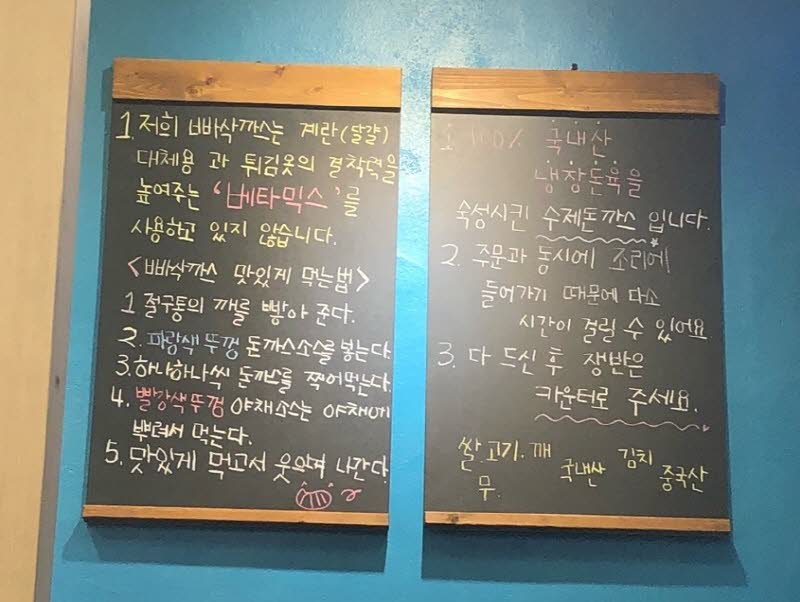 1. 저희 빠삭까스는 계란(달걀)
대체용 과 튀김옷의 결착력을
높여주는 '베타믹스'를
사용하고 있지 않습니다.
<빠삭까스 맛있게 먹는법>
1 절구통의 깨를 빻아 준다.
2. 파랑색 뚜껑 돈까스소스를 넣는다
3. 하나하나씩 돈까스를 찍어먹는다.
4. 빨강색뚜껑 야채소스는 야채에
뿌려서 먹는다.
5. 맛있게 먹고서 웃으며 나간다.
1. 100% 국내산
냉장돈육을
숙성시킨 수제돈까스 입니다.
2. 주문과 동시에 조리에
들어가기 때문에 다소
시간이 걸릴 수 있어요
3. 다 드신 후 쟁반은
카운터로 주세요.
쌀.고기.깨
무.
국내산
김치
중국산